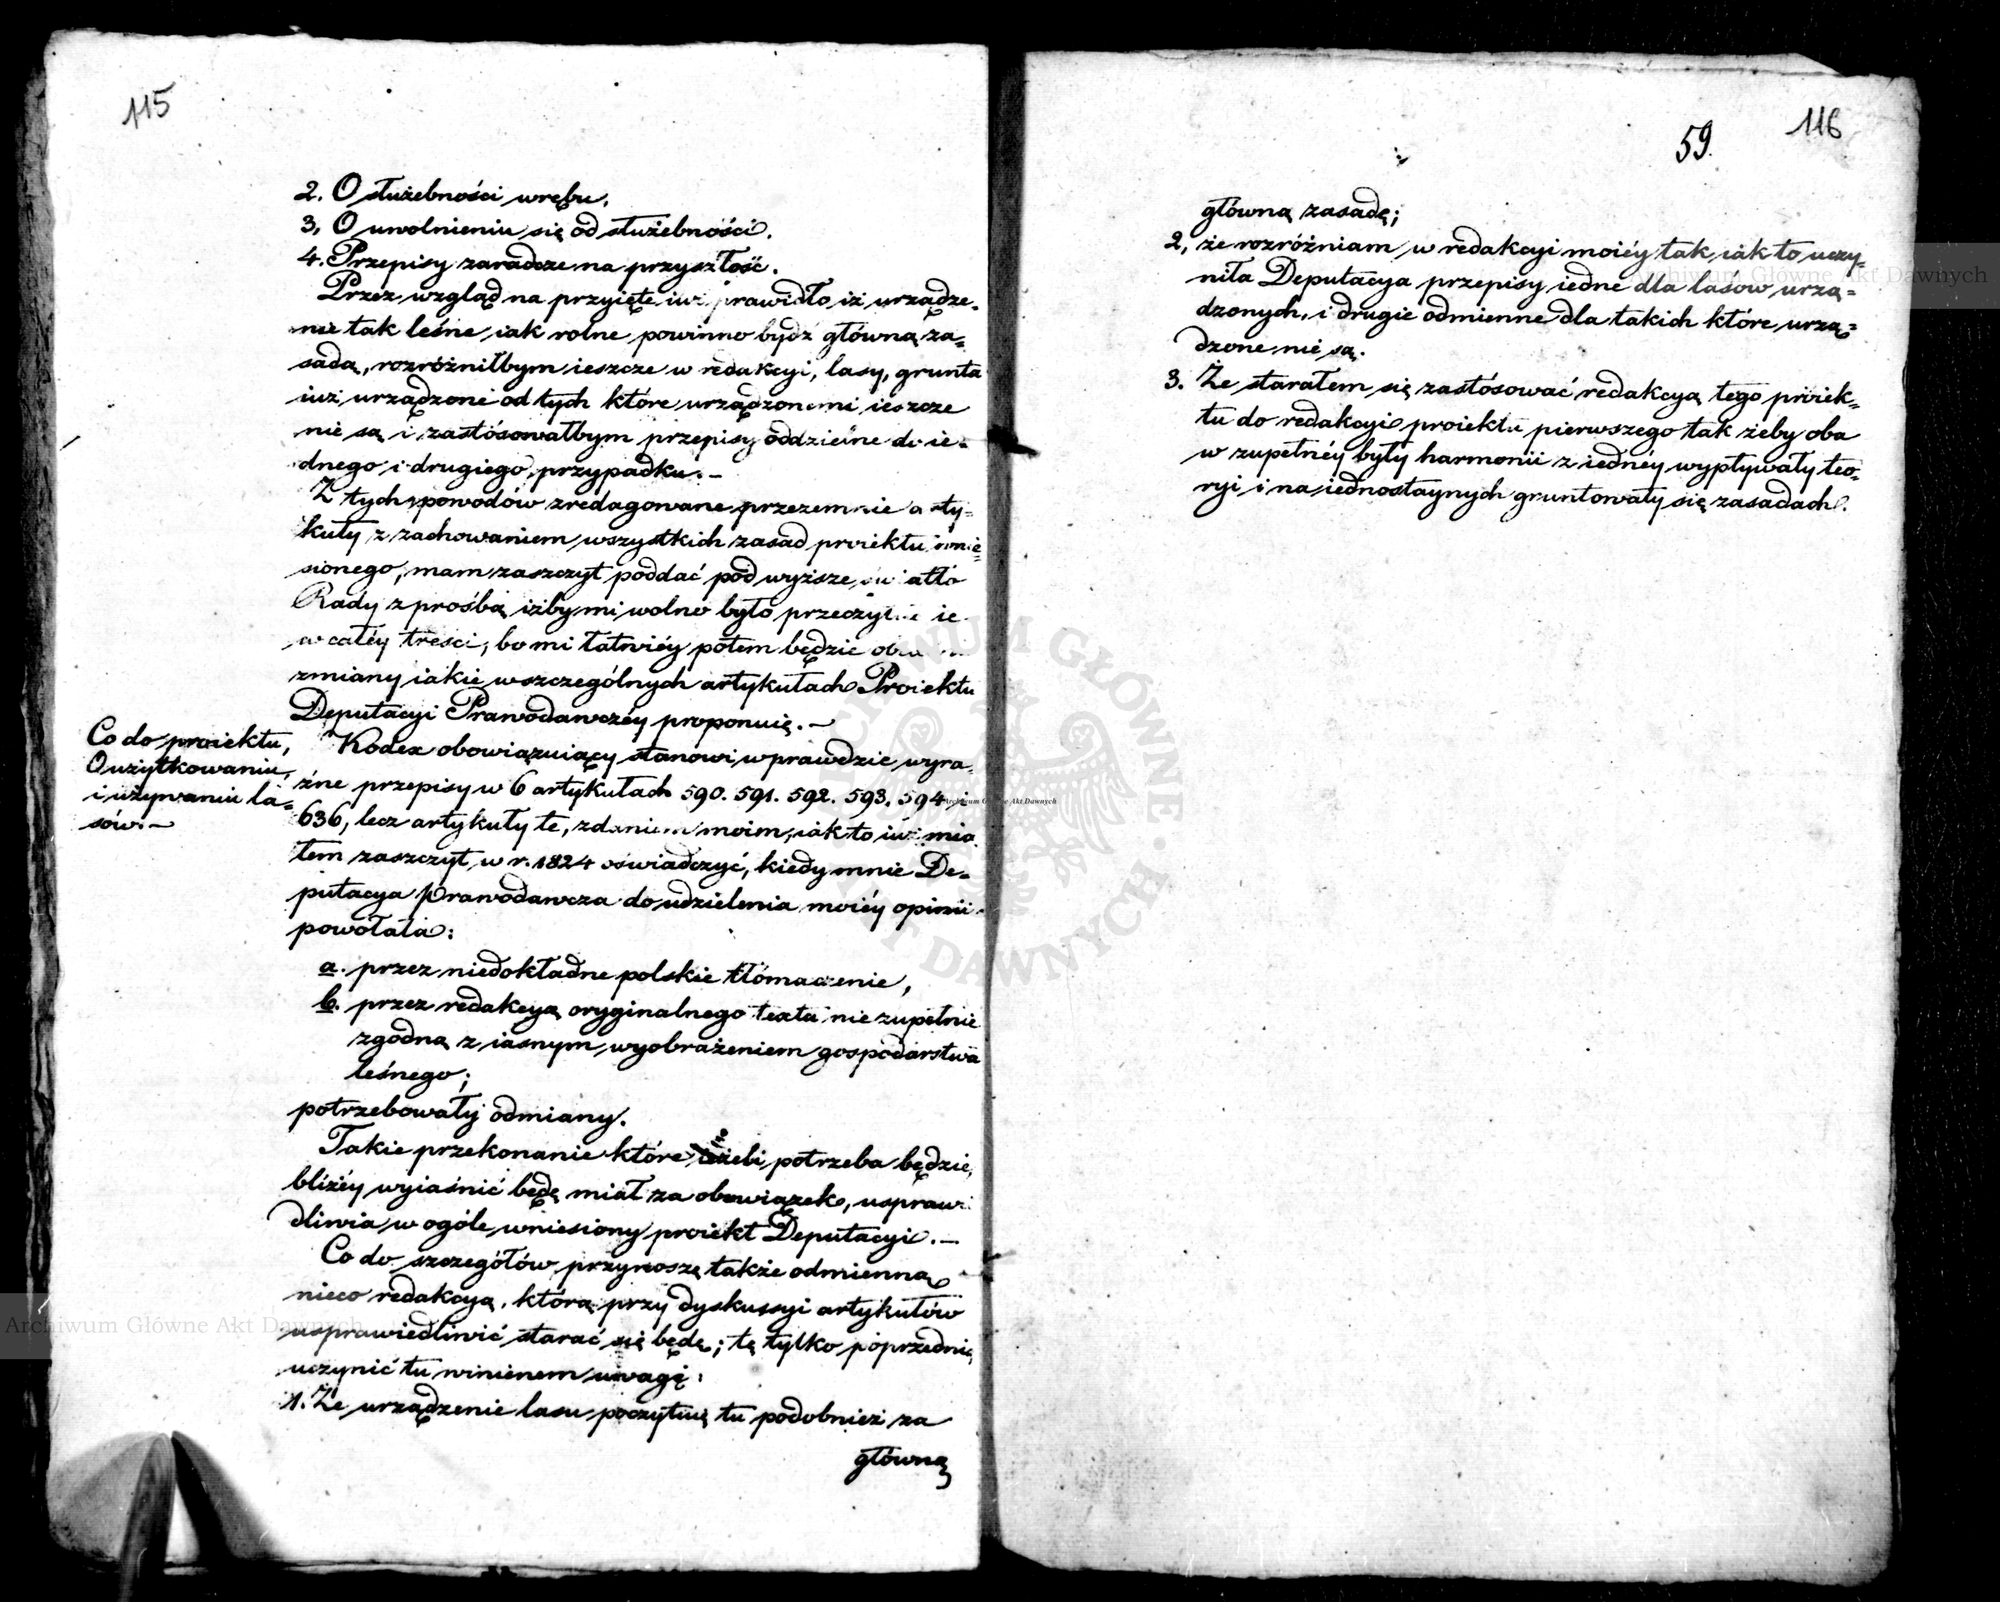 115
2. O służebności wrębu.
3. O uwolnieniu się od służebności.
4. Przepisy zaradcze na przyszłość.
Przez wzgląd na przyięte iuż prawidło iż urządze-
nie tak leśne iak rolne powinno bydź główną za-
sadą, rozróżniłbym ieszcze w redakcyi, lasy, grunta
iuż urządzone od tych które urządzonemi ieszcze
nie są i zastósowałbym przepisy oddzielne do ie-
dnego i drugiego przypadku. —
Z tych powodów zredagowane przezemnie arty-
kuły z zachowaniem wszystkich zasad proiektu wnie-
sionego, mam zaszczyt poddać pod wyższe światło
Rady z prośbą iżby mi wolno było przeczytać ie
w całéy treści, bo mi łatwiéy potem będzie
zmiany iakie w szczególnych artykułach Proiektu
Deputacyi Prawodawczéy proponuię. —
Co do proiektu,
O użytkowaniu,
i używaniu la-
sów. —
Kodex obowiązuiący stanowi wprawdzie wyra-
źne przepisy w 6 artykułach 590. 591. 592. 593. 594 i
636, lecz artykuły te, zdaniem moim, iak to iuż mia-
łem zaszczyt w r. 1824 oświadczyć, kiedy mnie De-
putacya Prawodawcza do udzielenia moiéy opinii
powołała:
a. przez niedokładne polskie tłómaczenie,
b. przez redakcyą oryginalnego textu nie zupełnie
zgodną z iasnym wyobrażeniem gospodarstwa
leśnego;
potrzebowały odmiany.
Takie przekonanie które ieżeli potrzeba będzie,
bliżéy wyiaśnić będę miał za obowiązek, usprawi-
dliwia w ogóle wniesiony proiekt Deputacyi. —
Co do szczegółów przynoszę także odmienną
nieco redakcyą, którą przy dyskussyi artykułów
usprawiedliwić starać się będę; tę tylko poprzednie
uczynić tu winienem uwagę:
1. Że urządzenie lasu poczytuię tu podobnież za
główną
116
59.
główną zasadę;
2, że rozróżniam w redakcyi moiéy tak iak to uczy-
niła Deputacya przepisy iedne dla lasów urzą-
dzonych, i drugie odmienne dla takich które urzą-
dzone nie są.
3. Że starałem się zastósować redakcyą tego proiek-
tu do redakcyi proiektu pierwszego tak żeby oba
w zupełnéy były harmonii z iednéy wypływały teo-
ryi i na iednostaynych gruntowały się zasadach.
Archiwum Główne Akt Dawnych
Archiwum Główne Akt Dawnych
Archiwum Główne Akt Dawnych
ARCHIWUM GŁÓWNE AKT DAWNYCH